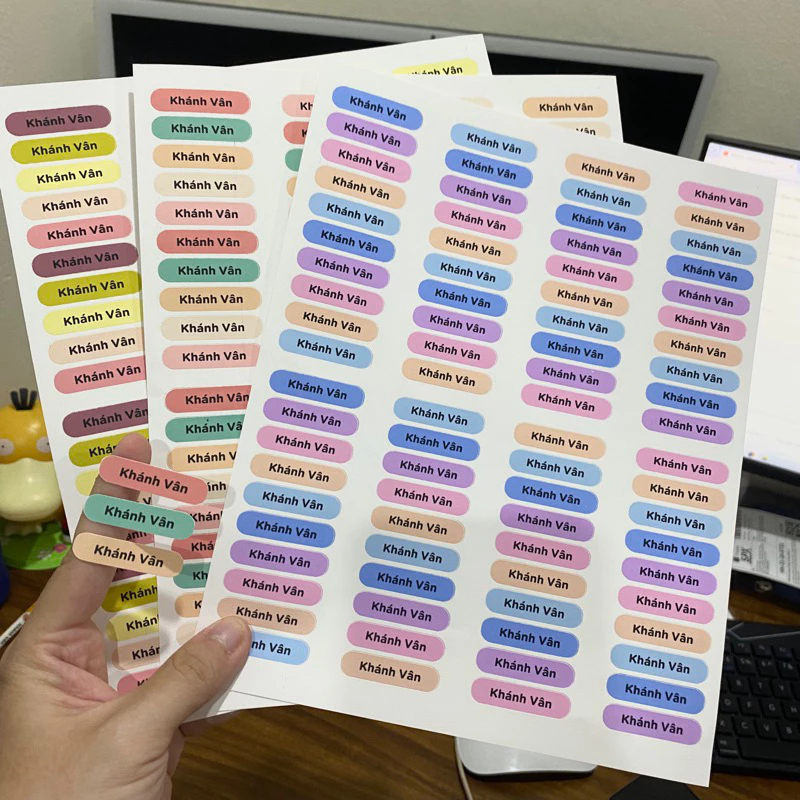 Khánh Vân
Khánh Vân
Khánh Vân
Khánh Vân
Khánh Vân
Khánh Vân
Khánh Vân
Khánh Vân
Khánh Vân
Khánh Vân
Khánh Vân
Khánh Vân
Khánh Vân
Khánh Vân
Khánh Vân
Khánh Vân
Khánh Vân
Khánh Vân
Khánh Vân
Khánh Vân
Khánh Vân
Khánh Vân
Khánh Vân
Khánh Vân
Khánh Vân
Khánh Vân
Khánh Vân
Khánh Vân
Khánh Vân
Khánh Vân
Khánh Vân
Khánh Vân
Khánh Vân
Khánh Vân
Khánh Vân
Khánh Vân
Khánh Vân
Khánh Vân
Khánh Vân
Khánh Vân
Khánh Vân
Khánh Vân
Khánh Vân
Khánh Vân
Khánh Vân
Khánh Vân
Khánh Vân
Khánh Vân
Khánh Vân
Khánh Vân
Khánh Vân
Khánh Vân
Khánh Vân
Khánh Vân
Khánh Vân
Khánh Vân
Khánh Vân
Khánh Vân
Khánh Vân
Khánh Vân
Khánh Vân
Khánh Vân
Khánh Vân
Khánh Vân
Khánh Vân
Khánh Vân
Khánh Vân
Khánh Vân
Khánh Vân
Khánh Vân
Khánh Vân
Khánh Vân
Khánh Vân
Khánh Vân
Khánh Vân
Khánh Vân
Khánh Vân
Khánh Vân
Khánh Vân
Khánh Vân
Khánh Vân
Khánh Vân
Khánh Vân
Khánh Vân
Khánh Vân
Khánh Vân
Khánh Vân
Khánh Vân
Khánh Vân
Khánh Vân
Khánh Vân
Khánh Vân
Khánh Vân
Khánh Vân
Khánh Vân
Khánh Vân
Khánh Vân
Khánh Vân
Khánh Vân
Khánh Vân
Khánh Vân
Khánh Vân
Khánh Vân
Khánh Vân
Khánh Vân